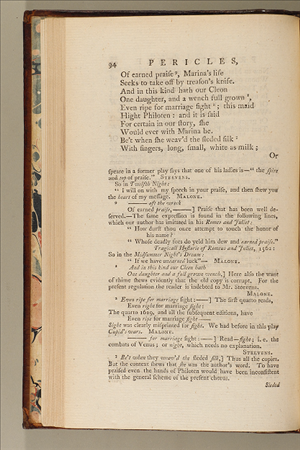 94 PERICLES,
Of earned praiſe ⁸, Marina's life
Seeks to take off by treaſon's knife.
And in this kind hath our Cleon
One daughter, and a wench full grown ⁹,
Even ripe for marriage fight ¹: this maid
Hight Philoten: and it is ſaid
For certain in our ſtory, ſhe
Would ever with Marina be.
Be't when ſhe weav'd the ſleded ſilk ²
With fingers, long, ſmall, white as milk;
Or
ſpeare in a former play ſays that one of his ladies is—" the ſpire
and top of praiſe." STEEVENS.
So in Twelfth Night:
" I will on with my ſpeech in your praiſe, and then ſhew you
the heart of my meſſage. MALONE.
Of earned praiſe,———] Praiſe that has been well de-
ſerved.—The ſame expreſſion is found in the following lines,
which our author has imitated in his Romeo and Juliet:
" How durſt thou once attempt to touch the honor of
his name?
" Whoſe deadly foes do yeld him dew and earned praiſe."
Tragicall Hyſtorie of Romeus and Juliet, 1562:
So in the Midſummer Night's Dream:
" If we have unearned luck"— MALONE.
And in this kind our Cleon hath
One daughter and a full grown wench,] Here alſo the want
of rhime ſhews evidently that the old copy is corrupt. For the
preſent regulation the reader is indebted to Mr. Steevens.
MALONE.
Even ripe for marriage fight:———] The firſt quarto reads,
Even right for marriage ſight:
The quarto 1619, and all the ſubſequent editions, have
Even ripe for marriage ſight———
Sight was clearly miſprinted for fight. We had before in this play
Cupid's wars. MALONE.
——— for marriage ſight:———] Read—fight; i. e. the
combats of Venus; or night, which needs no explanation.
STEEVENS.
² Be't when they weav'd the ſleded ſilk,] Thus all the copies.
But the context ſhews that ſhe was the author's word. To have
praiſed even the hands of Philoten would have been inconſiſtent
with the general ſcheme of the preſent chorus.
Sleded